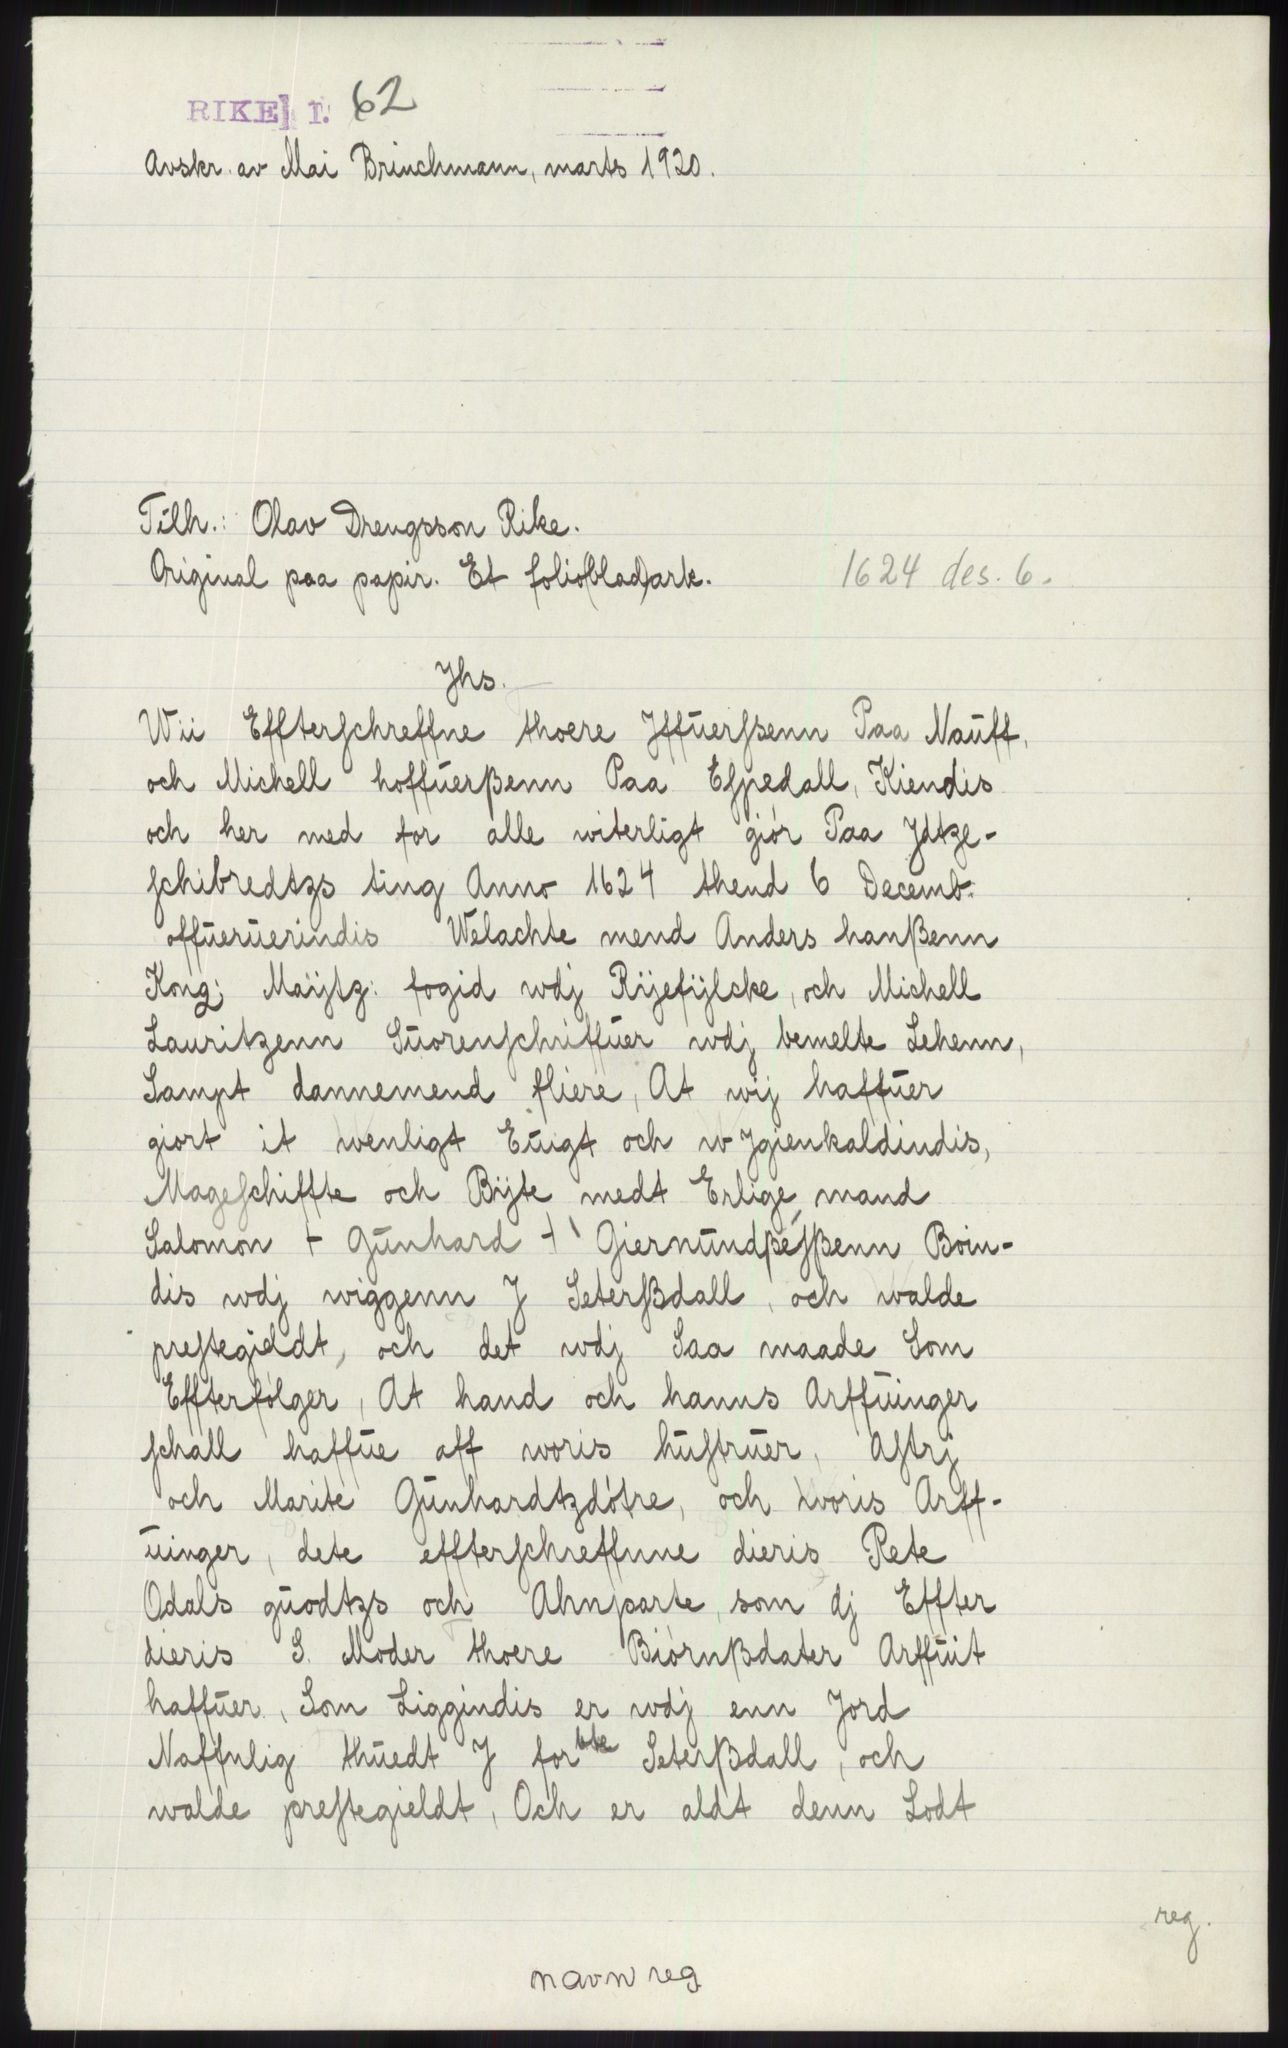 RIKE] 1. 62
Avskr. av Mai Brinchmann, marts 1920.
Tilh.: Olav Drengsson Rike.
Original paa papir. Et folio(blad)ark.
1624 des. 6.
Jhs.
Wii Effterschreffne thoere Jffuerssenn Paa Nauff,
och Michell hoffuerßenn Paa Espedall, Kiendis
och her med for alle witerligt giór Paa Jdtze-
schibredtzs ting Anno 1624 thend 6 Decemb:
offueruerindis Welachte mend Anders hanßenn
Kong: Maÿtz: fogid wdj Rÿefÿlcke, och Michell
Lauritzenn Suorenschriffuer wdj bemelte Lehenn,
Sampt dannemend fliere, At wij haffuer
giort it wenligt Euigt och w Jgienkaldindis,
Mageschiffte och Bÿte medt Erlige mand
Salomon + Gunhard + Giermundßeßenn Boin-
dis wdj wiggenn J Seterßdall, och walde
prestegieldt, och det wdj Saa maade Som
Effterfólger, At hand och hanns Arffuinger
schall haffue aff woris hustruer, Astrj
och Marite Gunhardtzdótre, och woris Arff-
uinger, dete effterschreffnne dieris Rete
Odals guodtzs och Ahnparte, som dj Effter
dieris S. Moder thoere Biórnßdater Arffuit
haffuer, Som Liggindis er wdj enn Jord
Naffnlig thuedt J for bte Seterßdall, och
walde prestegieldt, Och er aldt denn Lodt
reg.
navn reg